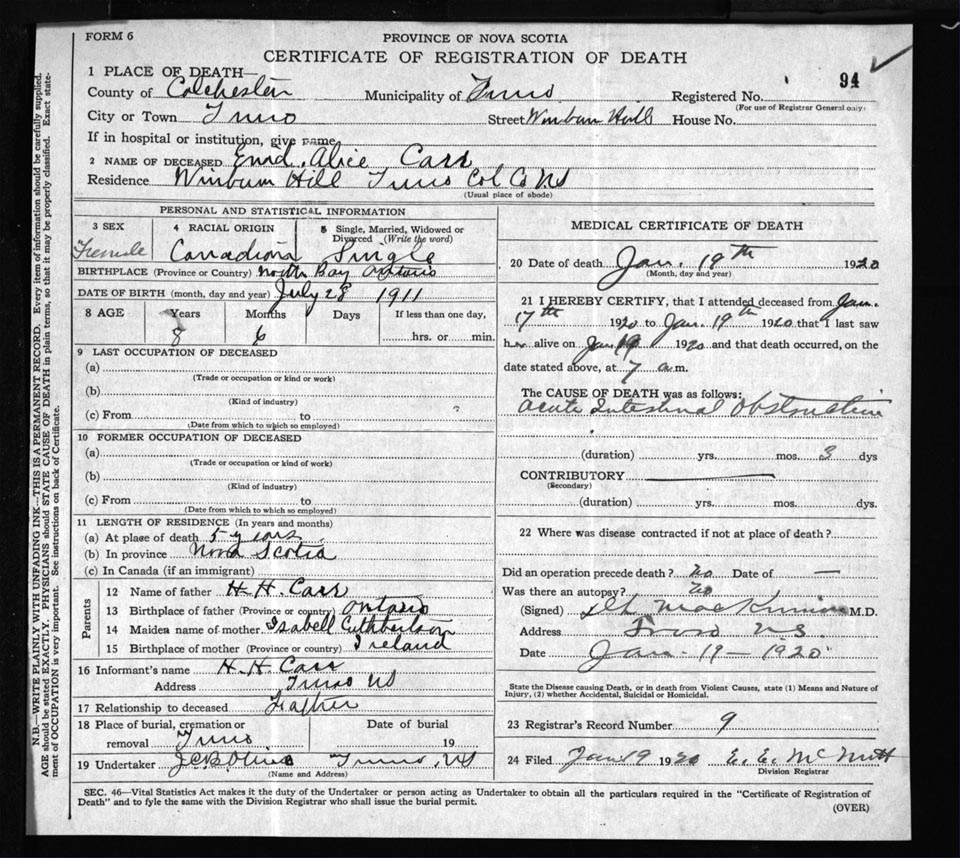 FORM 6
PROVINCE OF NOVA SCOTIA
CERTIFICATE OF REGISTRATION OF DEATH
94
1 PLACE OF DEATH—
County of Colchester Municipality of Truro Registered No.
(For use of Registrar General only)
City or Town Truro Street Winburn Hill House No.
If in hospital or institution, give name
2 NAME OF DECEASED Enid Alice Carr
Residence Winburn Hill Truro Col Co NS
(Usual place of abode)
PERSONAL AND STATISTICAL INFORMATION
3 SEX 4 RACIAL ORIGIN 5 Single, Married, Widowed or Divorced (Write the word)
Female Canadian Single
BIRTHPLACE (Province or Country) North Bay Ontario
DATE OF BIRTH (month, day and year) July 28 1911
8 AGE Years Months Days If less than one day,
8 6 hrs. or min.
9 LAST OCCUPATION OF DECEASED
(a)
(Trade or occupation or kind or work)
(b)
(Kind of industry)
(c) From to
(Date from which to which so employed)
10 FORMER OCCUPATION OF DECEASED
(a)
(Trade or occupation or kind of work)
(b)
(Kind of industry)
(c) From to
(Date from which to which so employed)
11 LENGTH OF RESIDENCE (In years and months)
(a) At place of death 5 years
(b) In province Nova Scotia
(c) In Canada (if an immigrant)
Parents
12 Name of father H. H. Carr
13 Birthplace of father (Province or country) Ontario
14 Maiden name of mother Isabell Cuthbertson
15 Birthplace of mother (Province or country) Ireland
16 Informant's name H. H. Carr
Address Truro NS
17 Relationship to deceased Father
18 Place of burial, cremation or removal Truro
Date of burial
19
19 Undertaker Truro, NS
(Name and Address)
MEDICAL CERTIFICATE OF DEATH
20 Date of death Jan. 19th 1920
(Month, day and year)
21 I HEREBY CERTIFY, that I attended deceased from Jan.
17th 1920 to Jan. 19th 1920 that I last saw
her alive on Jan 19 1920 and that death occurred, on the
date stated above, at 7 a.m.
The CAUSE OF DEATH was as follows:
Acute Intestinal Obstruction
(duration) yrs. mos. 3 dys
CONTRIBUTORY
(Secondary)
(duration) yrs. mos. dys.
22 Where was disease contracted if not at place of death?
Did an operation precede death? no Date of —
Was there an autopsy? no
(Signed) MacKinnon M.D.
Address Truro NS.
Date Jan. 19 — 1920
State the Disease causing Death, or in death from Violent Causes, state (1) Means and Nature of
Injury, (2) whether Accidental, Suicidal or Homicidal.
23 Registrar's Record Number 9
24 Filed Jan 19 1920 E. E. McNutt
Division Registrar
SEC. 46—Vital Statistics Act makes it the duty of the Undertaker or person acting as Undertaker to obtain all the particulars required in the "Certificate of Registration of
Death" and to fyle the same with the Division Registrar who shall issue the burial permit.
(OVER)
N.B.—WRITE PLAINLY WITH UNFADING INK—THIS IS A PERMANENT RECORD. Every item of information should be carefully supplied.
AGE should be stated EXACTLY. PHYSICIANS should STATE CAUSE OF DEATH in plain terms, so that it may be properly classified. Exact state-
ment of OCCUPATION is very important. See instructions on back of Certificate.